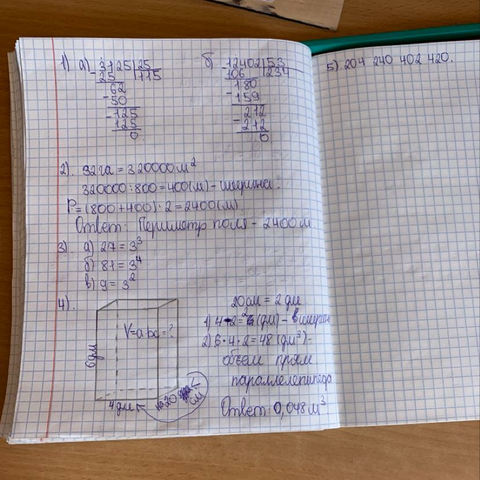 1) а) 3125 | 25
- 25 | 115
62
- 50
- 125
125
0
б) 12402 | 53
- 106 | 234
- 180
159
- 212
212
0
2). 32 га = 320000 м²
320000 : 800 = 400 (м) - ширина.
P = (800 + 400) · 2 = 2400 (м)
Ответ: Периметр поля - 2400 м
3) а) 27 = 3³
б) 81 = 3⁴
в) 9 = 3²
4).
V = abc = ?
6 дм
4 дм
на 20
см
20 см = 2 дм
1) 4 - 2 = 2 (дм) -
2) 6 · 4 · 2 = 48 (дм³) -
объем прям
параллелепипеда
Ответ: 0,048 м³
5) 204 240 402 420.